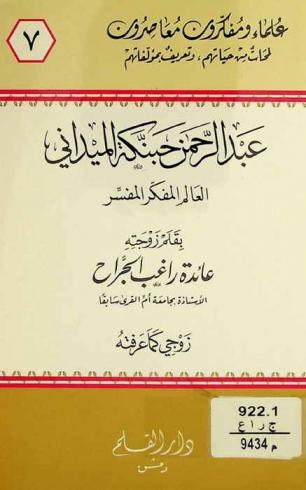 ٧
علماء ومفكرون معاصرون
لمحات من حياتهم، وتعريف بمؤلفاتهم
عبد الرحمن حبنكة الميداني
العالم المفكر المفسر
بقلم زوجته
عائدة راغب الجراح
الأستاذة بجامعة أم القرى سابقا
زوجي كما عرفته
922.1
ج ر ا ع
م 9434
دار القلم
دمشق